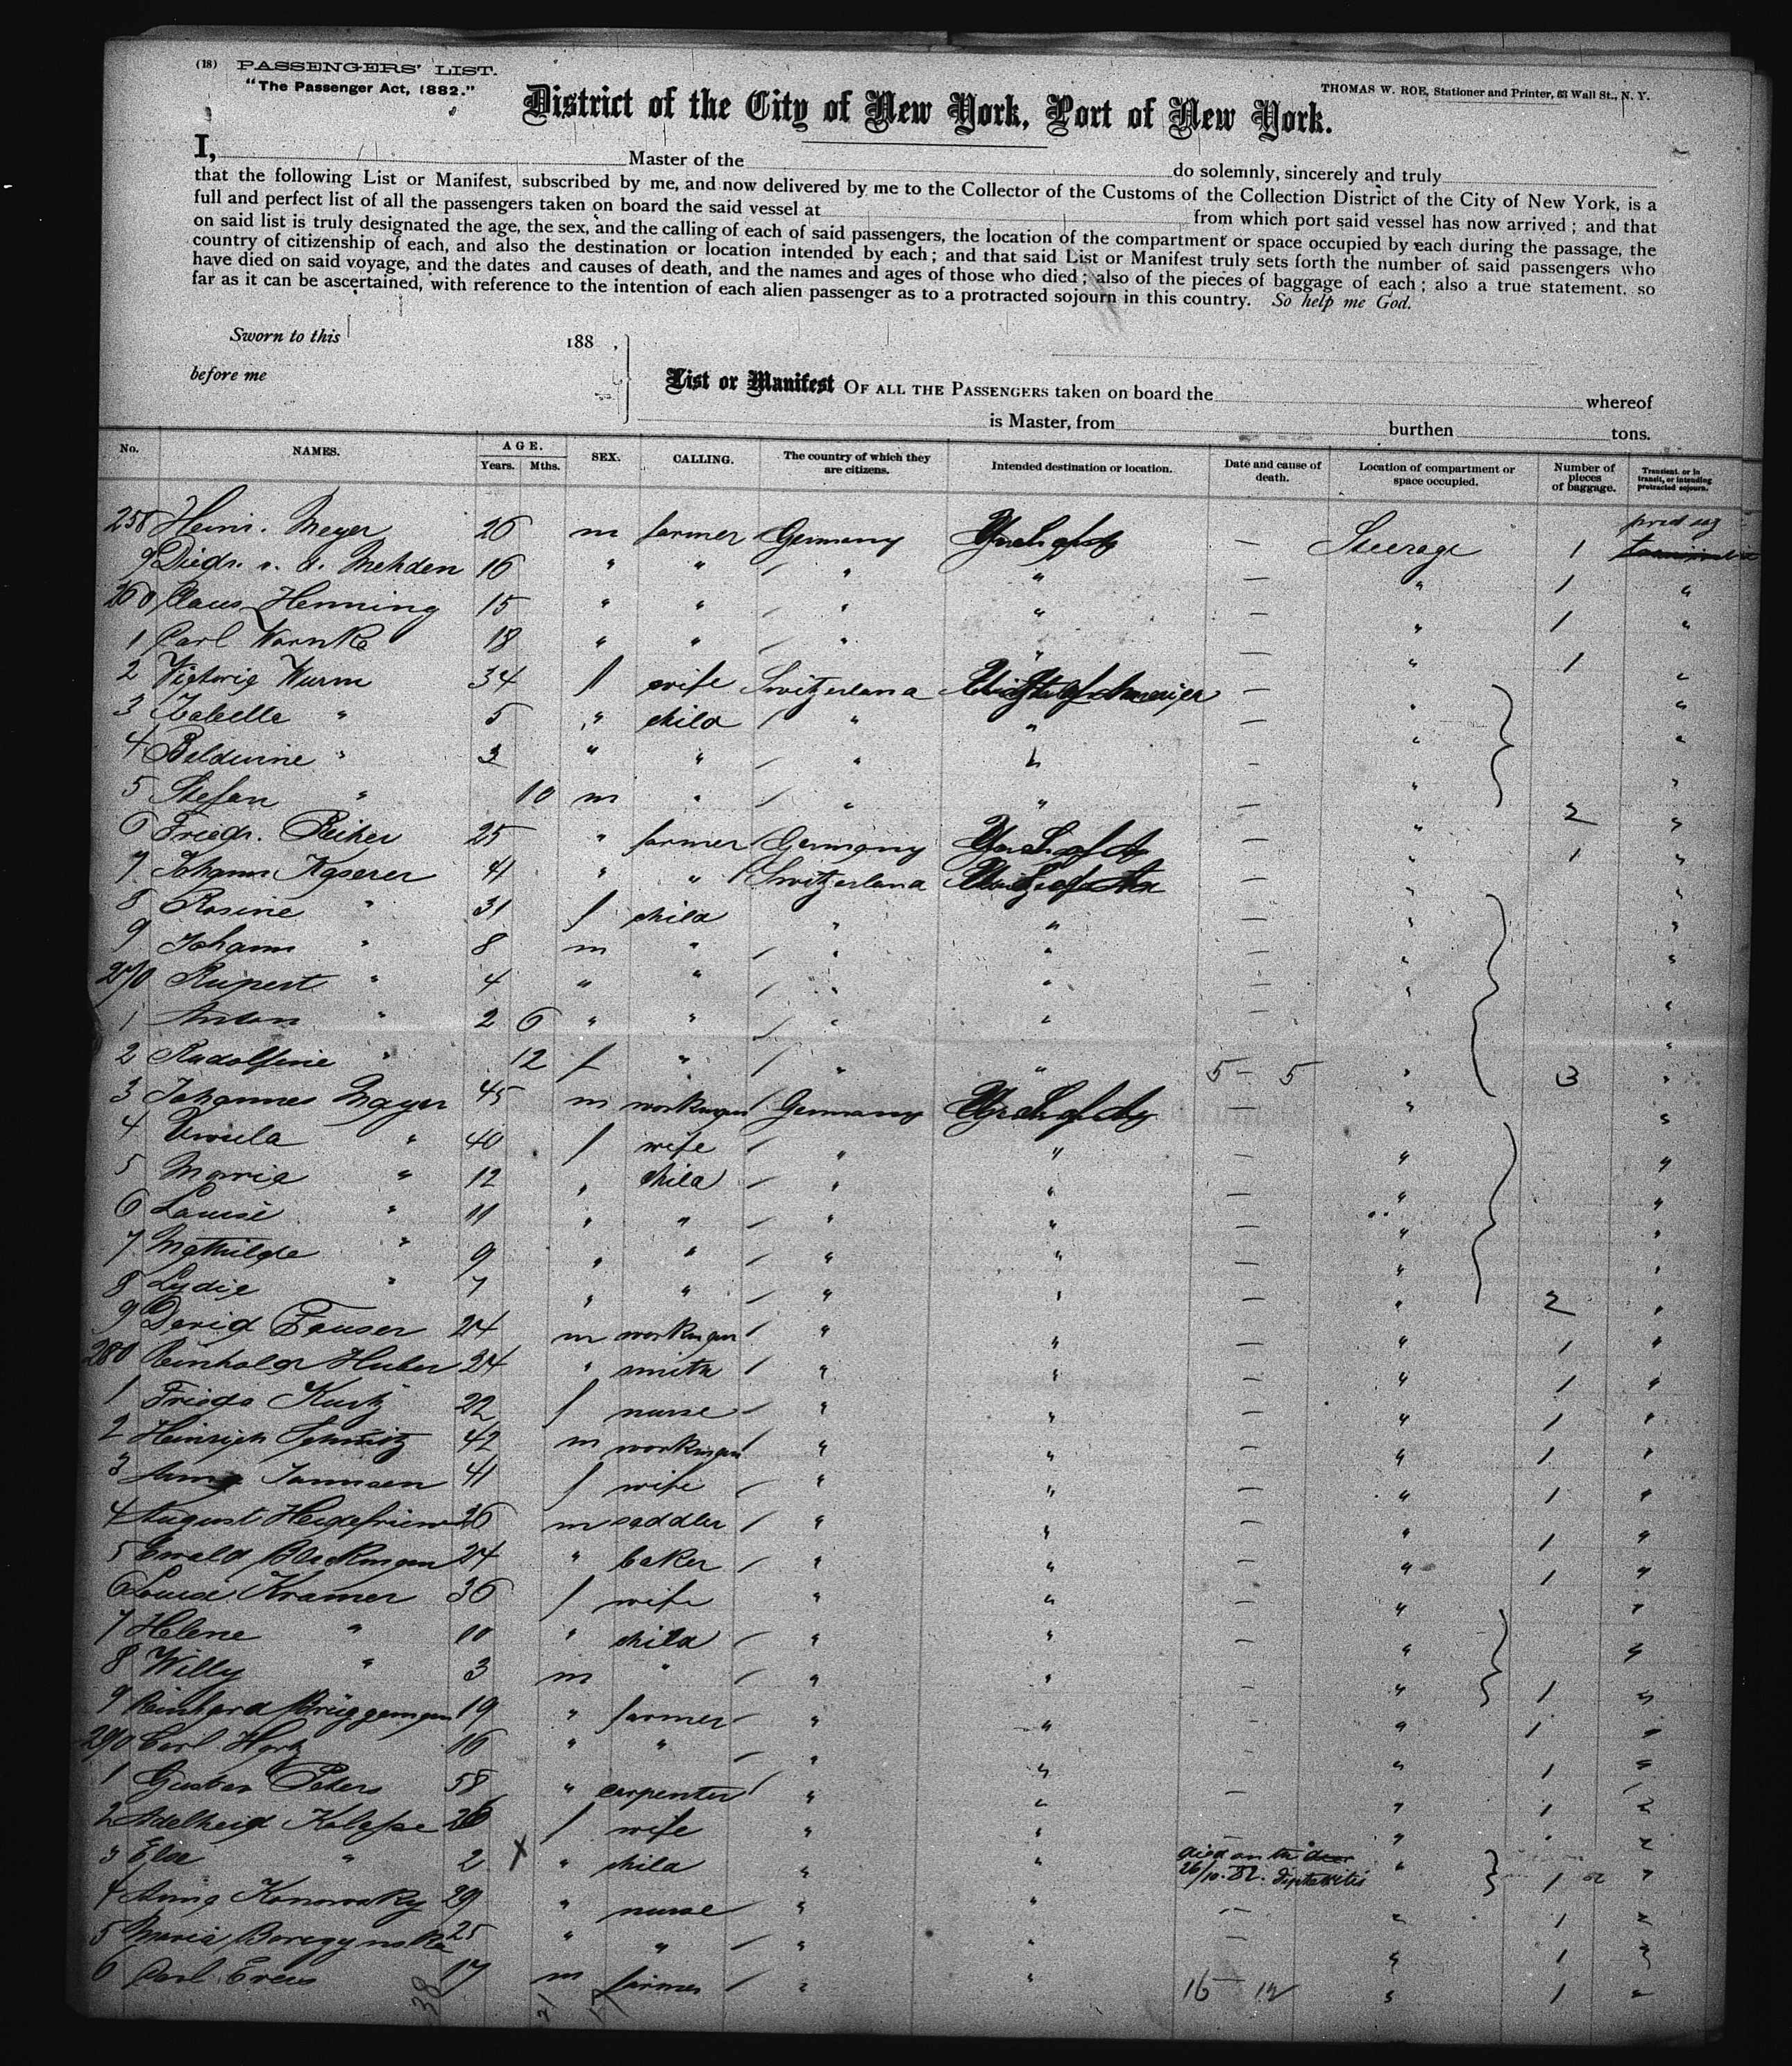 (18) PASSENGERS' LIST.
"The Passenger Act, 1882."
THOMAS W. ROE, Stationer and Printer, 63 Wall St., N. Y.
District of the City of New York, Port of New York.
I, Master of the do solemnly, sincerely and truly
that the following List or Manifest, subscribed by me, and now delivered by me to the Collector of the Customs of the Collection District of the City of New York, is a
full and perfect list of all the passengers taken on board the said vessel at from which port said vessel has now arrived; and that
on said list is truly designated the age, the sex, and the calling of each of said passengers, the location of the compartment or space occupied by each during the passage, the
country of citizenship of each, and also the destination or location intended by each; and that said List or Manifest truly sets forth the number of said passengers who
have died on said voyage, and the dates and causes of death, and the names and ages of those who died; also of the pieces of baggage of each; also a true statement, so
far as it can be ascertained, with reference to the intention of each alien passenger as to a protracted sojourn in this country. So help me God.
Sworn to this 188 ,
before me
List or Manifest OF ALL THE PASSENGERS taken on board the whereof
is Master, from burthen tons.
No. NAMES. AGE. Years. Mths. SEX. CALLING. The country of which they are citizens. Intended destination or location. Date and cause of death. Location of compartment or space occupied. Number of pieces of baggage. Transient, or in transit, or intending protracted sojourn.
258 Heinr. Meyer 26 m farmer Germany — Steerage 1
9 Diedr. v. d. Mehden 16 " " " " — " 1 "
260 Claus Henning 15 " " " " — " 1 "
1 Carl Warnke 18 " " " " — " 1 "
2 Wurm 34 f wife Switzerland — " "
3 Isabella " 5 " child " " — " "
4 Balduine " 3 " " " " — " "
5 Stefan " 10 m " " " — " 2 "
6 Friedr. 25 " farmer Germany — " 1 "
7 Johann Kaserer 41 " " Switzerland — " "
8 Rosine " 31 f child " " — " "
9 Johann " 8 m " " " — " "
270 Rupert " 4 " " " " — " "
1 Anton " 2 6 " " " " — " "
2 Rudolfine " 12 f " " " 5 — 5 " 3 "
3 Johannes Mayer 45 m workman Germany — " "
4 Ursula " 40 f wife " " — " "
5 Maria " 12 " child " " — " "
6 Louise " 11 " " " " — " "
7 Mathilde " 9 " " " " — " "
8 Lydie " 7 " " " " — " 2 "
9 David Fauser 24 m workman " " — " 1 "
280 Reinhold Huber 24 " smith " " — " 1 "
1 Frieda Kurtz 22 f nurse " " — " 1 "
2 Heinrich Schmitz 42 m workman " " — " 1 "
3 Anna Janssen 41 f wife " " — " 1 "
4 August 26 m saddler " " — " 1 "
5 Ewald 24 " baker " " — " 1 "
6 Louise Kramer 36 f wife " " — " "
7 Helene " 10 " child " " — " "
8 Willy " 3 m " " " — " 1 "
9 Brüggemann 19 " farmer " " — " 1 "
290 Carl 16 " " " " — " 1 "
1 Gustav Peters 58 " carpenter " " — " 1 "
2 Adelheid 26 f wife " " — " "
3 Else " 2 X " child " " died on the
26/10. " 1 "
4 Anna 29 " nurse " " — " 1 "
5 Maria 25 " " " " — " 1 "
6 Carl Evers 17 m farmer " " " 1 "
38 21 17 16 — 12